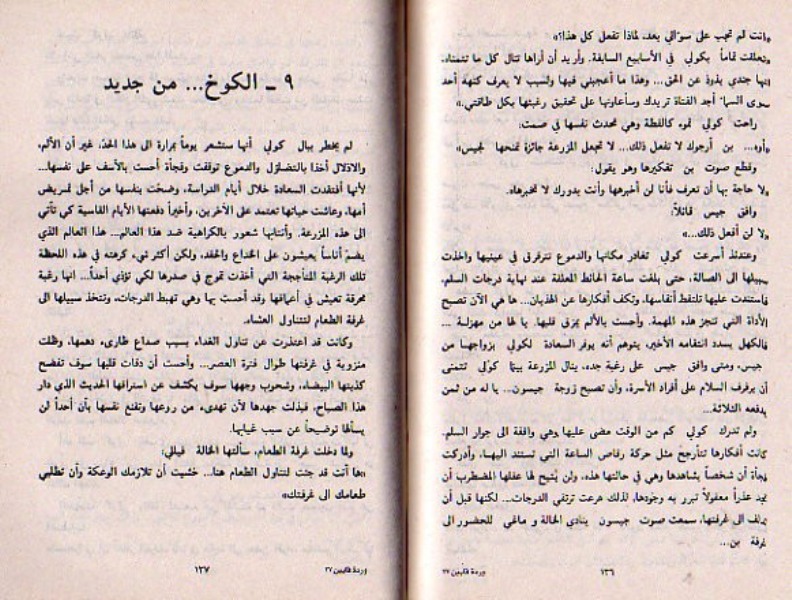 «انت لم تجب على سؤالي بعد، لماذا تفعل كل هذا؟»
«تعلقت تماماً بكولي في الأسابيع السابقة. وأريد أن أراها تنال كل ما تتمناه.
انها جندي يذود عن الحق... وهذا ما أعجبني فيها ولسبب لا يعرف كنهه أحد
سوى السما أجد الفتاة تريدك وسأعاونها على تحقيق رغبتها بكل طاقتي.»
راحت كولي تموء كالقطة وهي تحدث نفسها في صمت:
«أوه... بن أرجوك لا تفعل ذلك... لا تجعل المزرعة جائزة تمنحها لجيس»
وقطع صوت بن تفكيرها وهو يقول:
«لا حاجة بها أن تعرف فأنا لن أخبرها وأنت بدورك لا تخبرها».
وافق جيس قائلاً:
«لا لن أفعل ذلك...»
وعندئذ أسرعت كولي تغادر مكانها والدموع تترقرق في عينيها واتخذت
سبيلها الى الصالة، حتى بلغت ساعة الحائط المعلقة عند نهاية درجات السلم.
فاستندت عليها تلتقط أنفاسها، وتكف أفكارها عن الهذيان... ها هي الآن تصبح
الأداة التي تنجز هذه المهمة. وأحست بالألم يمزق قلبها. يا لها من مهزلة ...
فالكهل يسدد انتقامه الأخير، يتوهم أنه يوفر السعادة لكولي بزواجها من
جيس، ومتى وافق جيس على رغبة جده، ينال المزرعة بينما كولي تتمنى
أن يرفرف السلام على أفراد الأسرة، وأن تصبح زوجة جيسون... يا له من ثمن
يدفعه الثلاثة...
ولم تدرك كولي كم من الوقت مضى عليها وهي واقفة الى جوار السلم.
كانت أفكارها تتأرجح مثل حركة رقاص الساعة التي تستند اليها، وأدركت
فجأة أن شخصاً يشاهدها وهي في حالتها هذه، ولن يتيح لها عقلها المضطرب أن
تجد عذراً معقولاً تبرر به وجودها، لذلك هرعت ترتقي الدرجات... لكنها قبل أن
تدلف الى غرفتها، سمعت صوت جيسون ينادي الخالة و ماغي للحضور الى
غرفة بن...
١٣٦
وردة قايين ٢٧
٩ ـ الكوخ... من جديد
لم يخطر ببال كولي أنها ستشعر يوماً بمرارة الى هذا الحد، غير أن الألم،
والاذلال أخذا بالتضاؤل والدموع توقفت وفجأة أحست بالأسف على نفسها...
لأنها أفتقدت السعادة خلال أيام الدراسة، وضحت بنفسها من أجل تمريض
أمها، وعاشت حياتها تعتمد على الآخرين، وأخيراً دفعتها الأيام القاسية كي تأتي
الى هذه المزرعة. وأنتابها شعور بالكراهية ضد هذا العالم... هذا العالم الذي
يضم أناساً يعيشون على الخداع والحقد، ولكن أكثر شيء كرهته في هذه اللحظة
تلك الرغبة المتأججة التي أخذت تموج في صدرها لكي تؤذي أحداً... انها رغبة
محرقة تعيش في أعماقها وقد أحست بها وهي تهبط الدرجات، وتتخذ سبيلها الى
غرفة الطعام لتتناول العشاء.
وكانت قد اعتذرت عن تناول الغداء، بسبب صداع طارىء دهمها، وظلت
منزوية في غرفتها طوال فترة العصر... وأحست أن دقات قلبها سوف تفضح
كذبتها البيضاء، وشحوب وجهها سوف يكشف عن استراقها الحديث الذي دار
هذا الصباح، فبذلت جهدها لأن تهدىء من روعها وتقنع نفسها بأن أحداً لن
يسألها توضيحاً عن سبب غيابها.
ولما دخلت غرفة الطعام، سألتها الخالة فيلي:
«ها أنت قد جئت لتتناول الطعام هنا... خشيت أن تلازمك الوعكة وأن تطلبي
طعامك الى غرفتك»
١٣٧
وردة قايين ٢٧